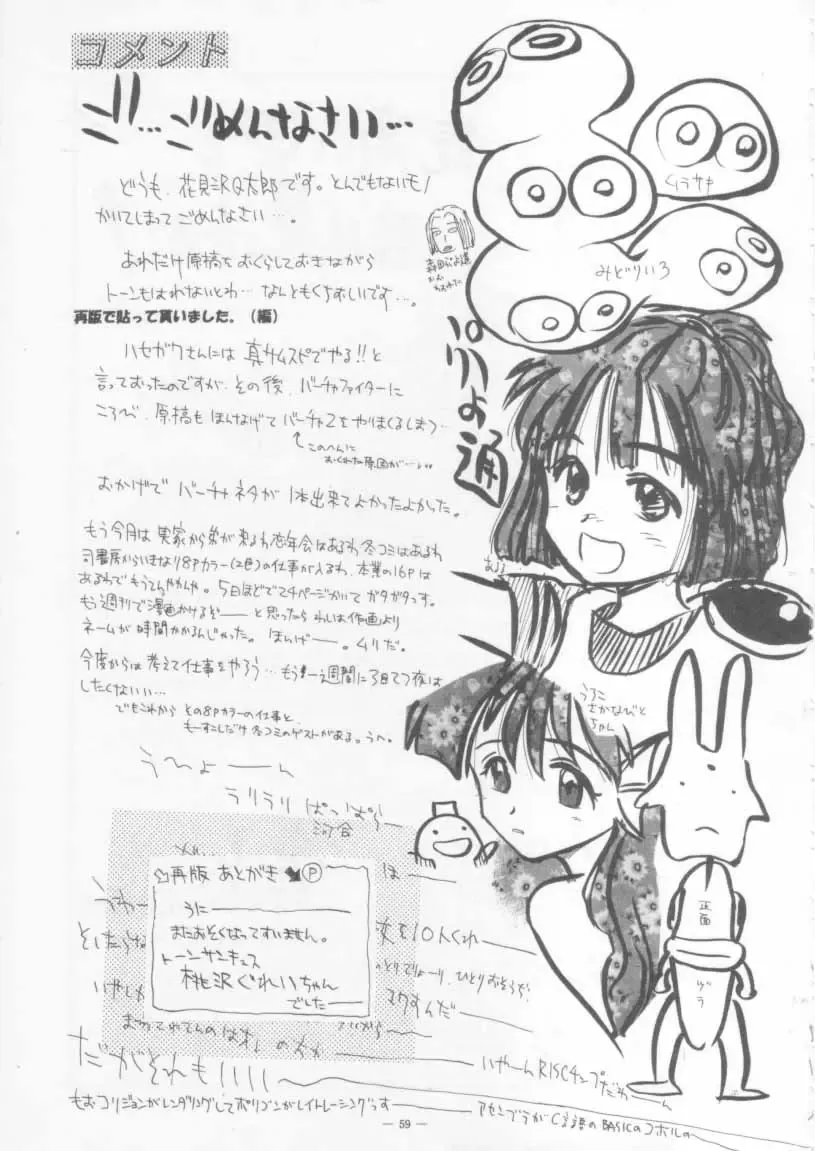 コメント
ゴ…ごめんなさい…
どうも、花見沢Q太郎です。とんでもないモノ
かいてしまってごめんなさい…。
あれだけ原稿をおくらしておきながら
トーンもはれないとわ…なんともくちおしいです…。
再版で貼って貰いました。(編)
ハセガワさんには真サムスピでやる!!と
言っておったのですが、その後、バーチャファイターに
ころび、原稿もほんなげてバーチャ2をやりまくるしまつ…
↑このへんに
おくれた原因が…
おかげでバーチャネタが1本出来てよかったよかった。
もう今月は実家から弟が来るわ忘年会はあるわ冬コミはあるわ
司書房からいきなり8Pカラー(2色)の仕事が入るわ、本業の16Pは
あるわでもうてんやわんや。5日ほどで24ページかいてガタガタっす。
もう週刊で漫画かけるぞ──と思ったらわしは作画より
ネームが時間かかるんじゃった。ほいげー。ムリだ。
今度からは考えて仕事をやろう…もう一週間に3日てつ夜は
したくないい…
でもこれからその8Pカラーの仕事と、
もーすこしだけ冬コミのゲストがある。うへ。
う〜ひょーーん
ラリラリぱっぱら
河合
再版 あとがき P
うに
またおそくなってすいません。
トーンサンキュス
桃沢ぐれいちゃん
でした
うわー
そしたらな
いやしか
ほ
変を10人くれ
ひとりでりょーり、ひとりおそうじ、
マクすんだ
だがそれもIIII
いやーんRISCチップだわーん
もおコリジョンがレンダリングしてポリゴンがレイトレーシングっす
アセンブラがC言語のBASICのコボルの
ムラサキ
みどりいろ
ばりいよ通
うろこ
さかなびと
ちゃん
正面
ヅラ
― 59 ―